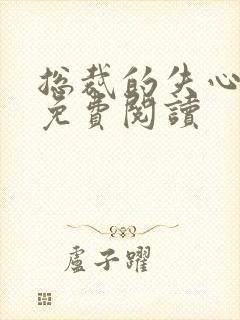 总裁的失心
免費閱讀
盧子躍